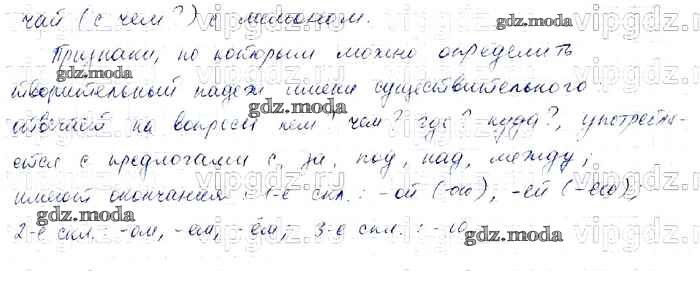 чай (с чем?) с лимоном.
Признаки, по которым можно определить
творительный падеж имени существительного
отвечает на вопросы кем? чем? где? куда?, употребля-
ется с предлогами с, за, под, над, между;
имеют окончания: 1-е скл.: -ой (-ою), -ей (-ею);
2-е скл.: -ом, -ем, -ём; 3-е скл.: -ю
gdz.moda
gdz.moda
gdz.moda
gdz.moda
gdz.moda
gdz.moda
gdz.moda
vipgdz.ru
vipgdz.ru
vipgdz.ru
vipgdz.ru